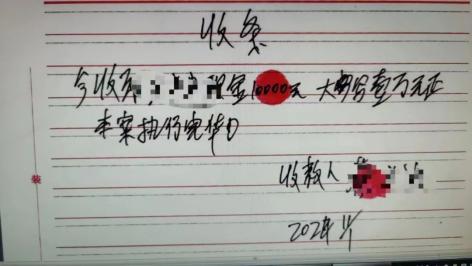 收条
今收 现金10000元 大写合壹万元正
本案执行完毕
收款人
装